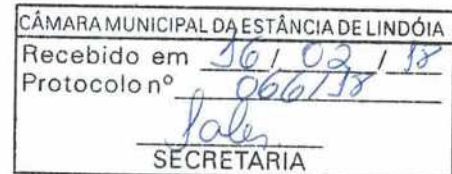 CÂMARA MUNICIPAL DA ESTÂNCIA DE LINDÓIA
Recebido em 16 / 02 / 18
Protocolo nº 066/18
Sales
SECRETARIA